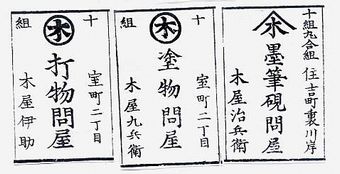 十九合組
住吉町裏川岸
木
墨筆硯問屋
木屋治兵衛
十組
木
室町二丁目
塗物問屋
木屋九兵衛
十組
木
室町二丁目
打物問屋
木屋伊助